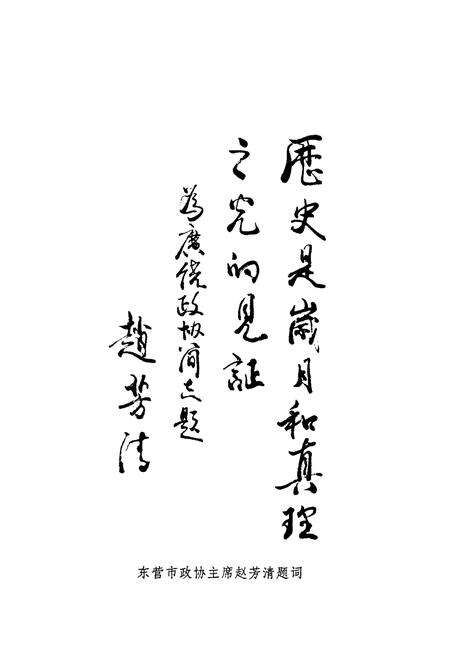 歷史是歲月和真理
之光的見証
為廣饒政协简志題
趙芳清
东营市政协主席赵芳清题词